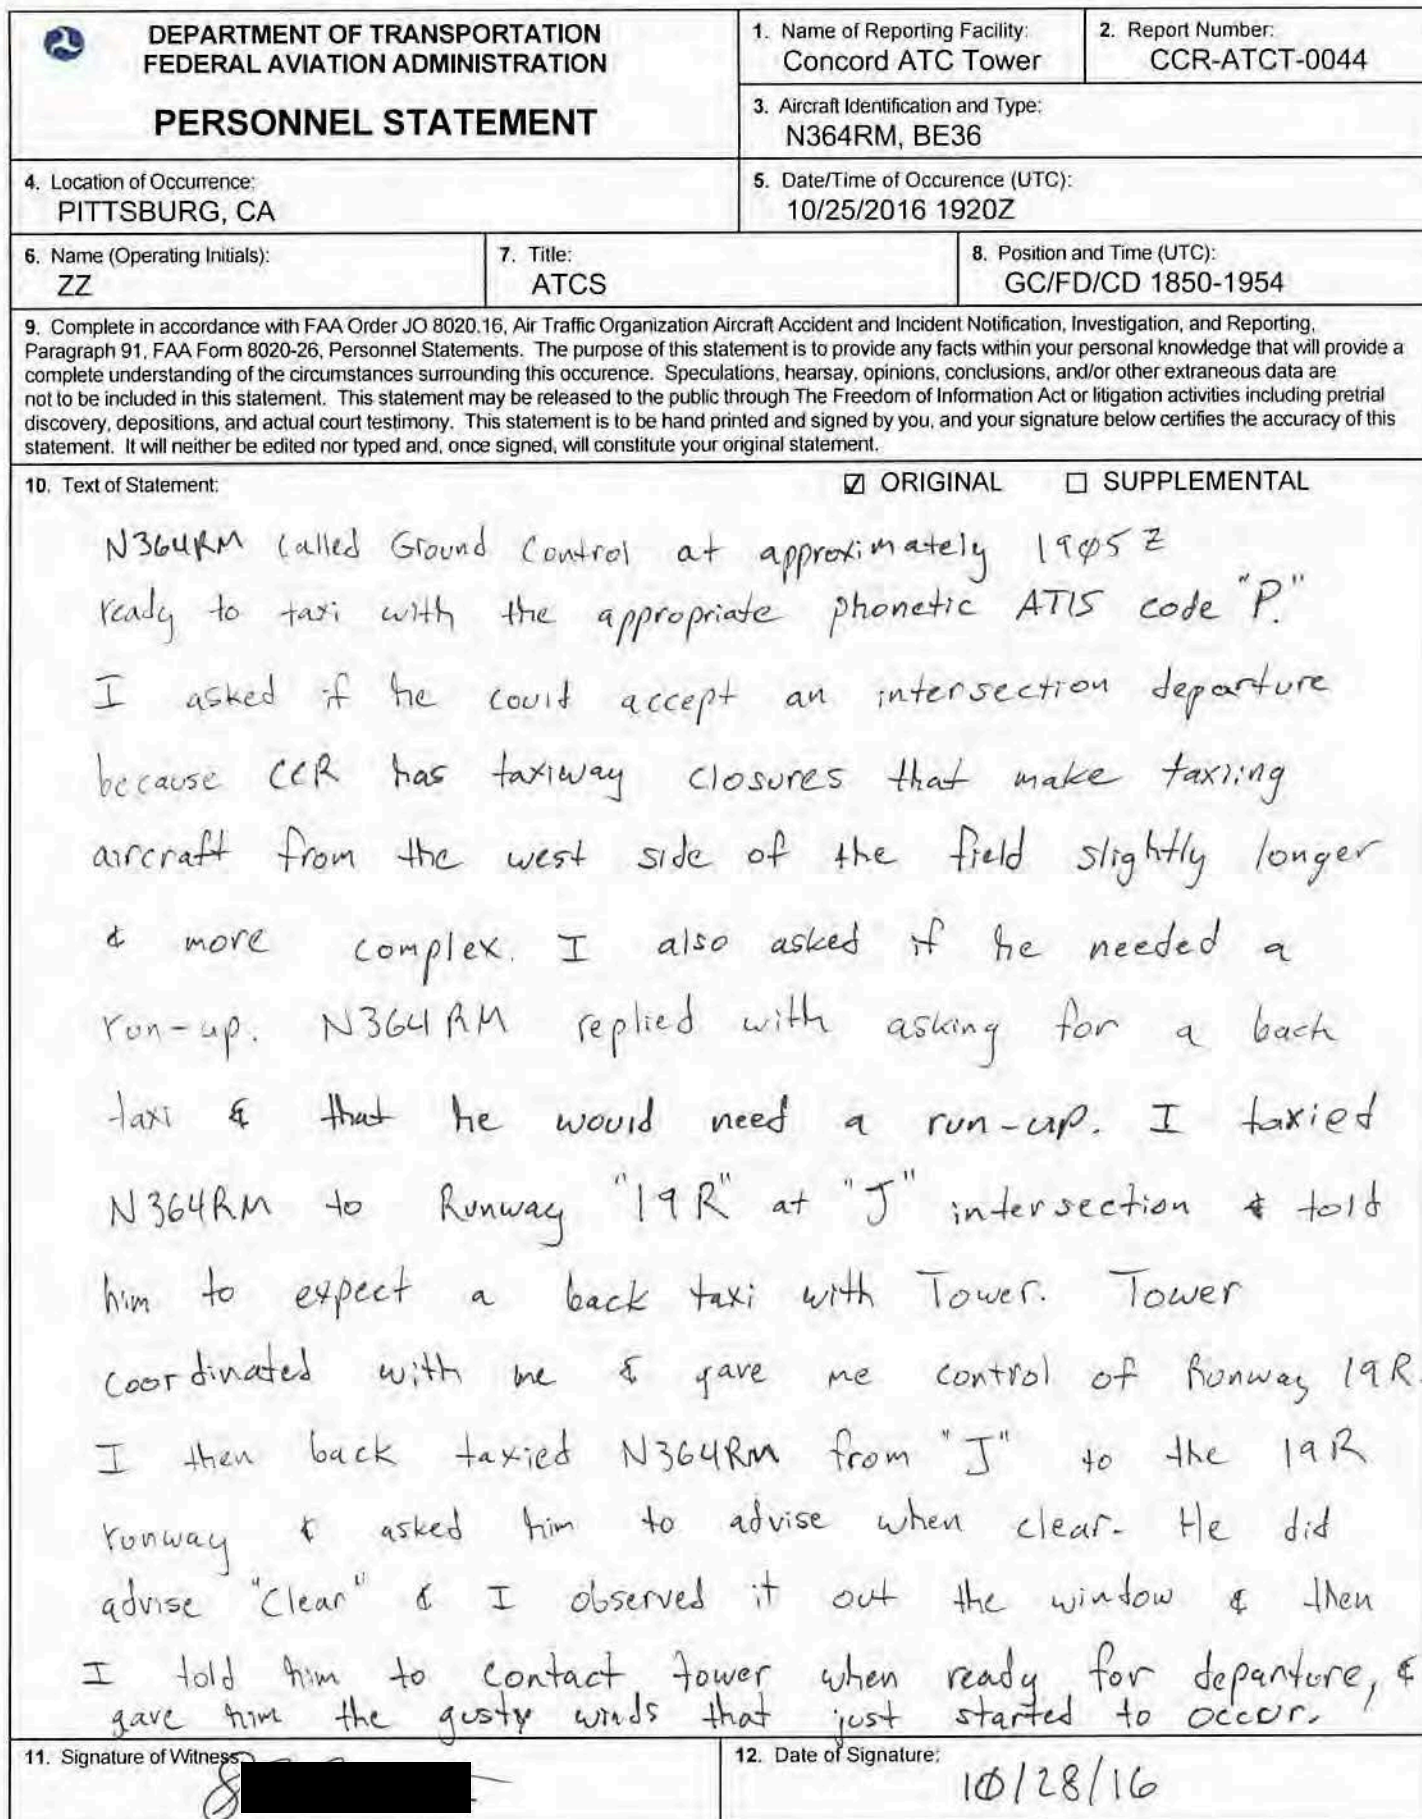 DEPARTMENT OF TRANSPORTATION
FEDERAL AVIATION ADMINISTRATION
PERSONNEL STATEMENT
1. Name of Reporting Facility:
Concord ATC Tower
2. Report Number:
CCR-ATCT-0044
3. Aircraft Identification and Type:
N364RM, BE36
4. Location of Occurrence:
PITTSBURG, CA
5. Date/Time of Occurence (UTC):
10/25/2016 1920Z
6. Name (Operating Initials):
ZZ
7. Title:
ATCS
8. Position and Time (UTC):
GC/FD/CD 1850-1954
9. Complete in accordance with FAA Order JO 8020.16, Air Traffic Organization Aircraft Accident and Incident Notification, Investigation, and Reporting,
Paragraph 91, FAA Form 8020-26, Personnel Statements. The purpose of this statement is to provide any facts within your personal knowledge that will provide a
complete understanding of the circumstances surrounding this occurence. Speculations, hearsay, opinions, conclusions, and/or other extraneous data are
not to be included in this statement. This statement may be released to the public through The Freedom of Information Act or litigation activities including pretrial
discovery, depositions, and actual court testimony. This statement is to be hand printed and signed by you, and your signature below certifies the accuracy of this
statement. It will neither be edited nor typed and, once signed, will constitute your original statement.
10. Text of Statement: ☑ ORIGINAL ☐ SUPPLEMENTAL
N364RM called Ground Control at approximately 19Ø5Z
ready to taxi with the appropriate phonetic ATIS code "P."
I asked if he could accept an intersection departure
because CCR has taxiway closures that make taxiing
aircraft from the west side of the field slightly longer
& more complex. I also asked if he needed a
run-up. N364RM replied with asking for a back
taxi & that he would need a run-up. I taxied
N364RM to Runway "19R" at "J" intersection & told
him to expect a back taxi with Tower. Tower
coordinated with me & gave me control of Runway 19R.
I then back taxied N364RM from "J" to the 19R
runway & asked him to advise when clear. He did
advise "Clear" & I observed it out the window & then
I told him to contact tower when ready for departure, &
gave him the gusty winds that just started to occur.
11. Signature of Witness:
12. Date of Signature:
1Ø/28/16